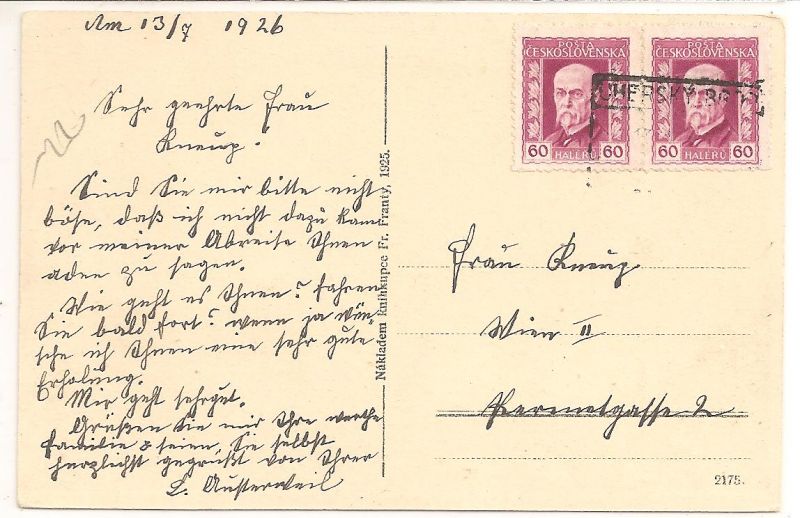 Am 13/7 1926
Sehr geehrte Frau
Kneup!
Sind Sie mir bitte nicht
böse, daß ich nicht dazu kam
vor meiner Abreise Ihnen
adeu zu sagen.
Wie geht es Ihnen? fahren
Sie bald fort? wenn ja wün-
sche ich Ihnen eine sehr gute
Erholung.
Mir geht sehrgut.
Grüßen Sie mir Ihre werthe
Familie & seien Sie selbst
herzlichst gegrüßt von Ihrer
L. Austerweil
Nákladem knihkupce Fr. Franty, 1925.
POŠTA
ČESKOSLOVENSKÁ
60 HALÉŘŮ 60
POŠTA
ČESKOSLOVENSKÁ
60 HALÉŘŮ 60
UHERSKÝ BROD
Frau Kneup
Wien II
Czerningasse 2
2175.